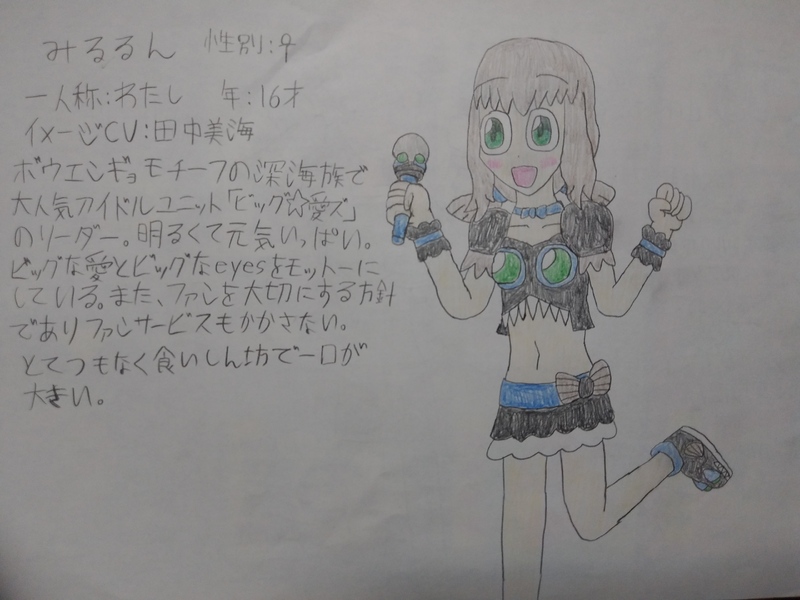 みるるん 性別:♀
一人称:わたし 年:16才
イメージCV:田中美海
ボウエンギョモチーフの深海族で
大人気アイドルユニット「ビッグ☆愛ズ」
のリーダー。明るくて元気いっぱい。
ビッグな愛とビッグなeyesをモットーに
している。また、ファンを大切にする方針
でありファンサービスもかかさない。
とてつもなく食いしん坊で一口が
大きい。